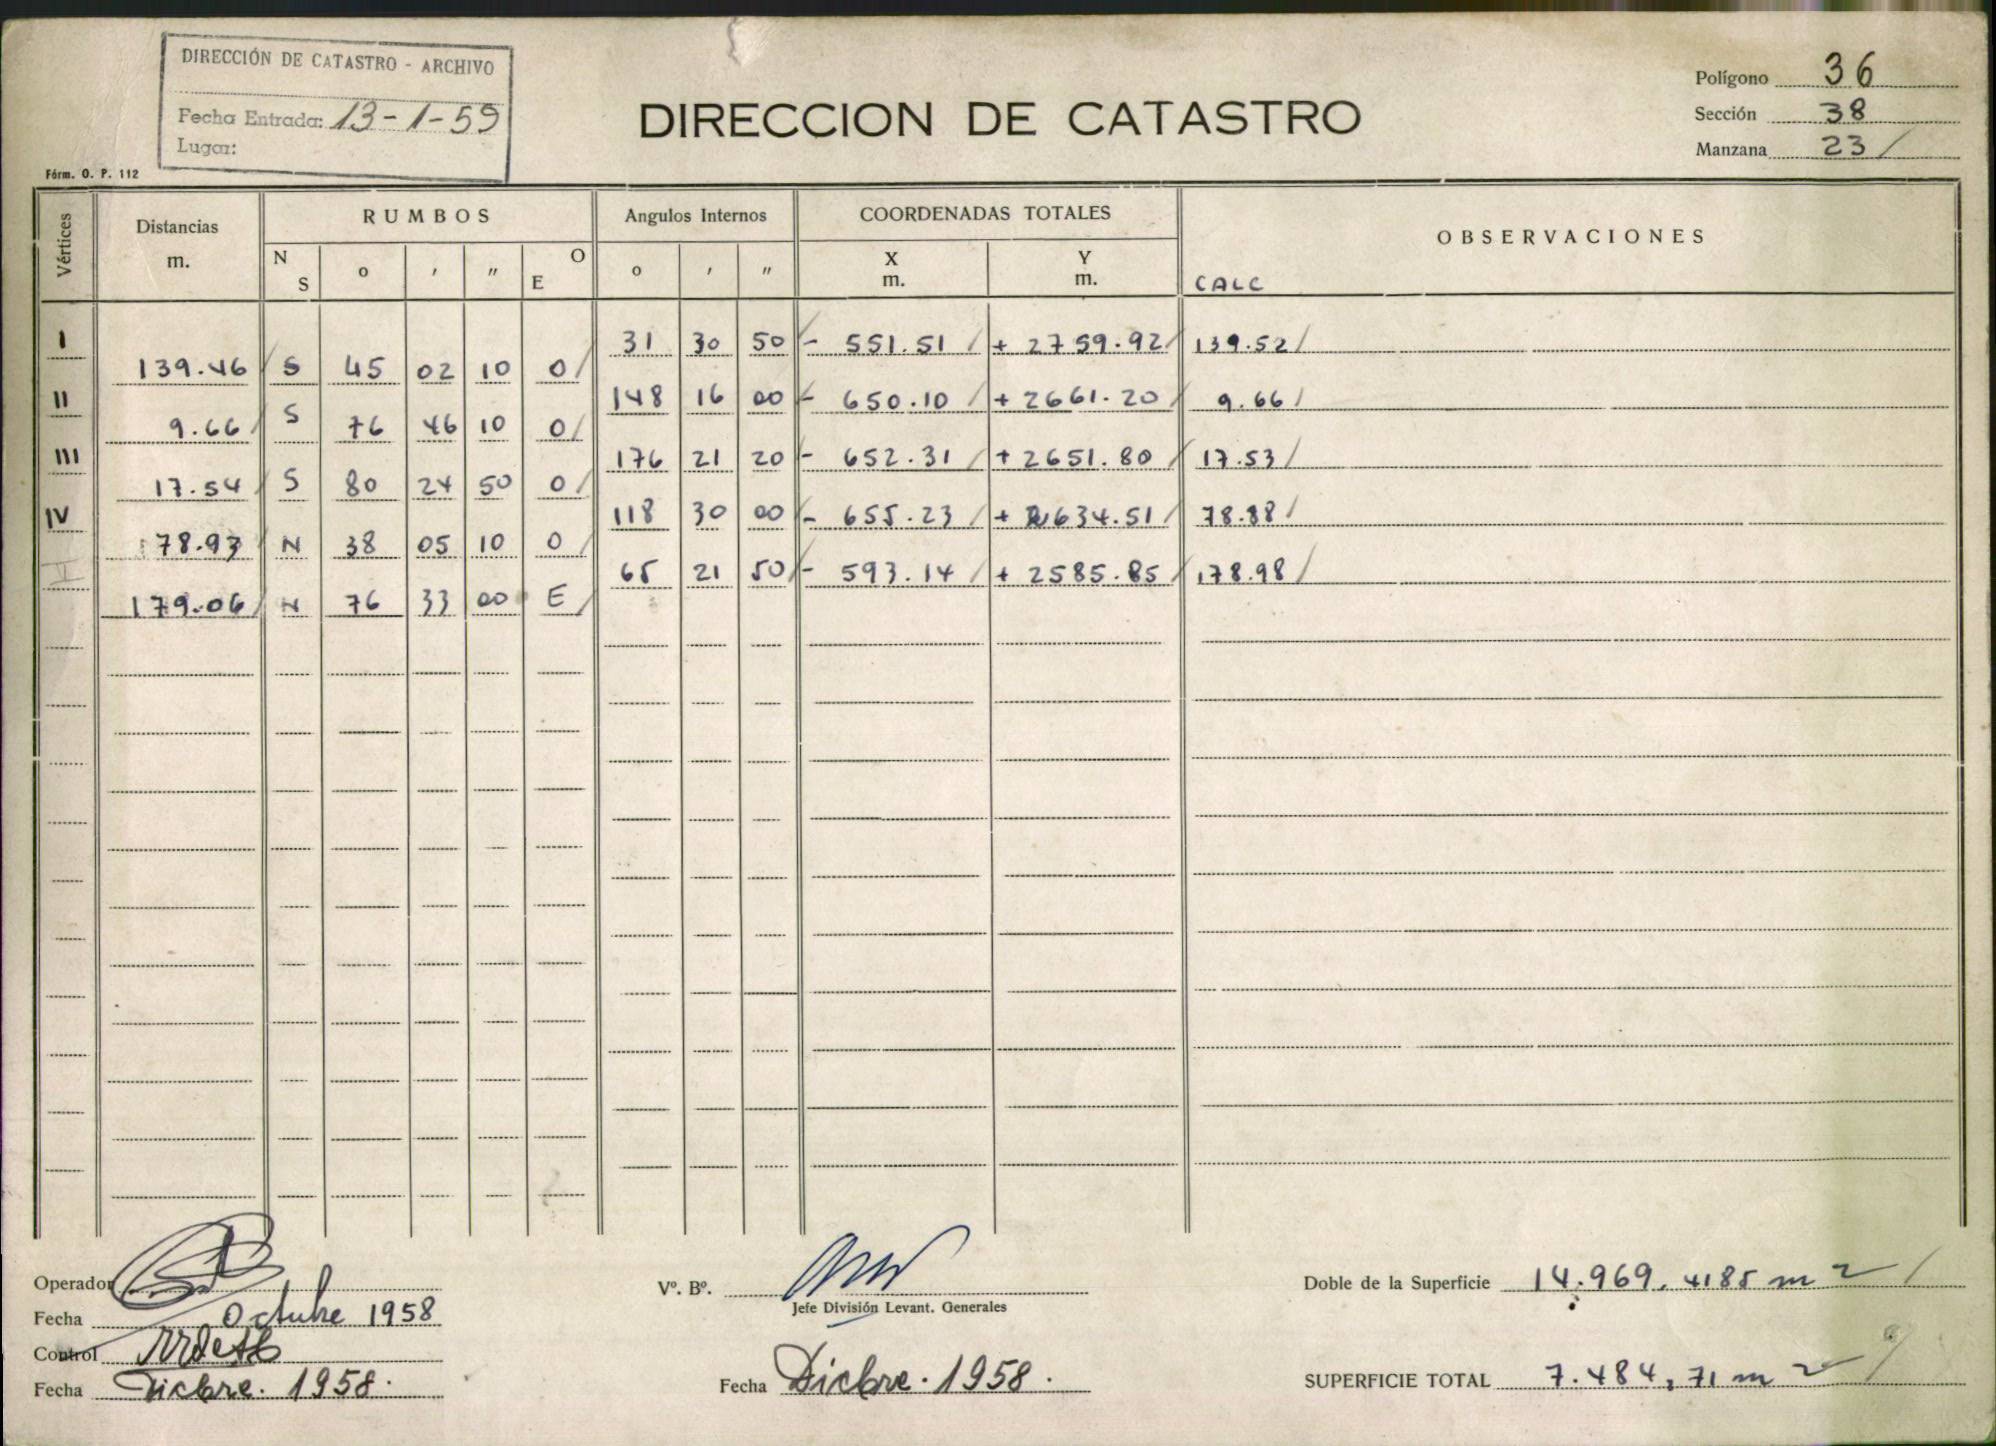 DIRECCIÓN DE CATASTRO - ARCHIVO
Fecha Entrada: 13-1-59
Lugar:
DIRECCION DE CATASTRO
Polígono 36
Sección 38
Manzana 23 /
Fórm. O. P. 112
Vértices Distancias m. RUMBOS Angulos Internos COORDENADAS TOTALES OBSERVACIONES
N S o ' " E O o ' " X m. Y m. CALC
I 31 30 50 / - 551.51 / + 2759.92 / 139.52 /
139.46 / S 45 02 10 O /
II 148 16 00 / - 650.10 / + 2661.20 / 9.66 /
9.66 / S 76 46 10 O /
III 176 21 20 / - 652.31 / + 2651.80 / 17.53 /
17.54 / S 80 24 50 O /
IV 118 30 00 / - 655.23 / + 2634.51 / 78.88 /
78.93 / N 38 05 10 O /
V 65 21 50 / - 593.14 / + 2585.85 / 178.98 /
179.06 / N 76 33 00 E /
Operador
Fecha Octubre 1958
Control
Fecha Dicbre. 1958.
Vº. Bº.
Jefe División Levant. Generales
Fecha Dicbre. 1958.
Doble de la Superficie 14.969,4185 m2 /
SUPERFICIE TOTAL 7.484,71 m2